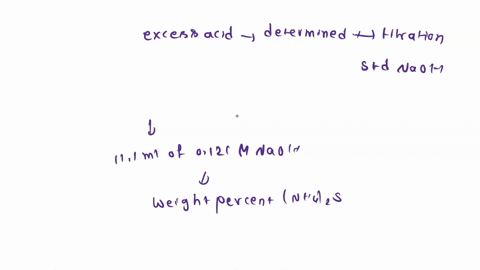 excess acid → determined ↔ titration
std NaOH
↓
11.1 ml of 0.121 M NaOH
↓
weight percent (NH4)2S